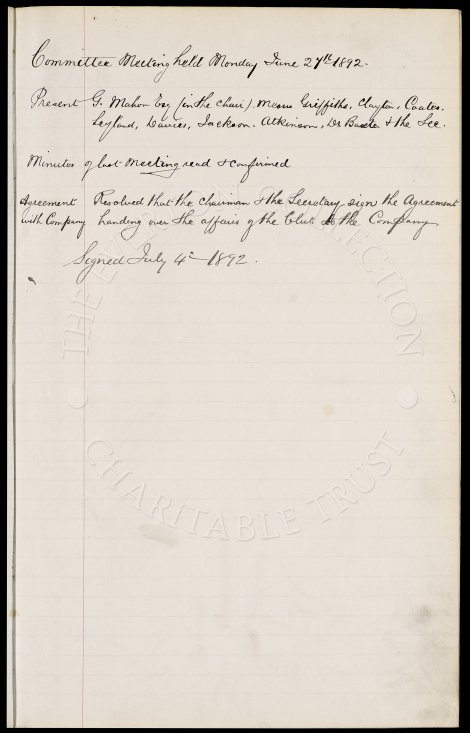 Committee Meeting held Monday June 27th 1892.
Present G. Mahon Esq (in the chair). Messrs Griffiths, Clayton, Coates.
Leyland, Davies, Jackson. Atkinson, Dr Baxter & the Sec.
Minutes of last Meeting read & confirmed
Agreement with Company
Resolved that the Chairman & the Secretary sign the Agreement
handing over the affairs of the Club to the Company
Signed July 4th 1892.
THE EVERTON COLLECTION
CHARITABLE TRUST